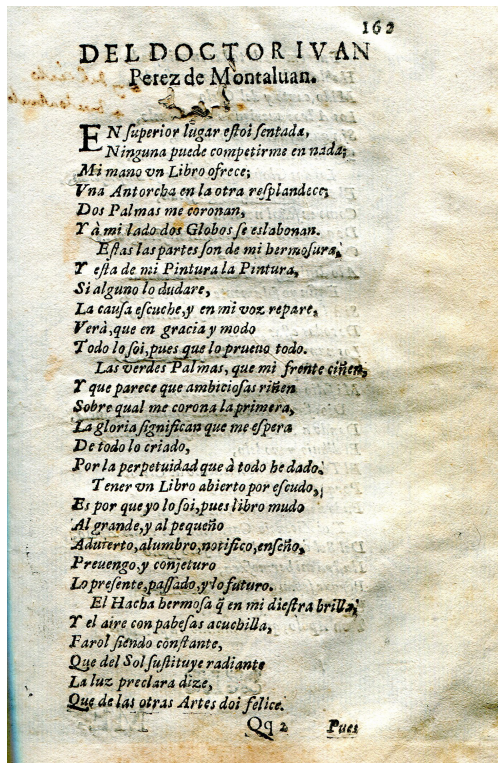 162
DEL DOCTOR IVAN
Perez de Montaluan.
EN superior lugar estoi sentada,
Ninguna puede competirme en nada;
Mi mano vn Libro ofrece;
Vna Antorcha en la otra resplandece;
Dos Palmas me coronan,
Y à mi lado dos Globos se eslabonan.
Estas las partes son de mi hermosura,
Y esta de mi Pintura la Pintura,
Si alguno lo dudare,
La causa escuche, y en mi voz repare,
Verà, que en gracia y modo
Todo lo soi, pues que lo prueuo todo.
Las verdes Palmas, que mi frente ciñen,
Y que parece que ambiciosas riñen
Sobre qual me corona la primera,
La gloria significan que me espera
De todo lo criado,
Por la perpetuidad que à todo he dado.
Tener vn Libro abierto por escudo,
Es por que yo lo soi, pues libro mudo
Al grande, y al pequeño
Aduierto, alumbro, notifico, enseño,
Preuengo, y conjeturo
Lo presente, passado, y lo futuro.
El Hacha hermosa q̃ en mi diestra brilla,
Y el aire con pabesas acuchilla,
Farol siendo constante,
Que del Sol sustituye radiante
La luz preclara dize,
Que de las otras Artes doi felice.
Qq 2 Pues